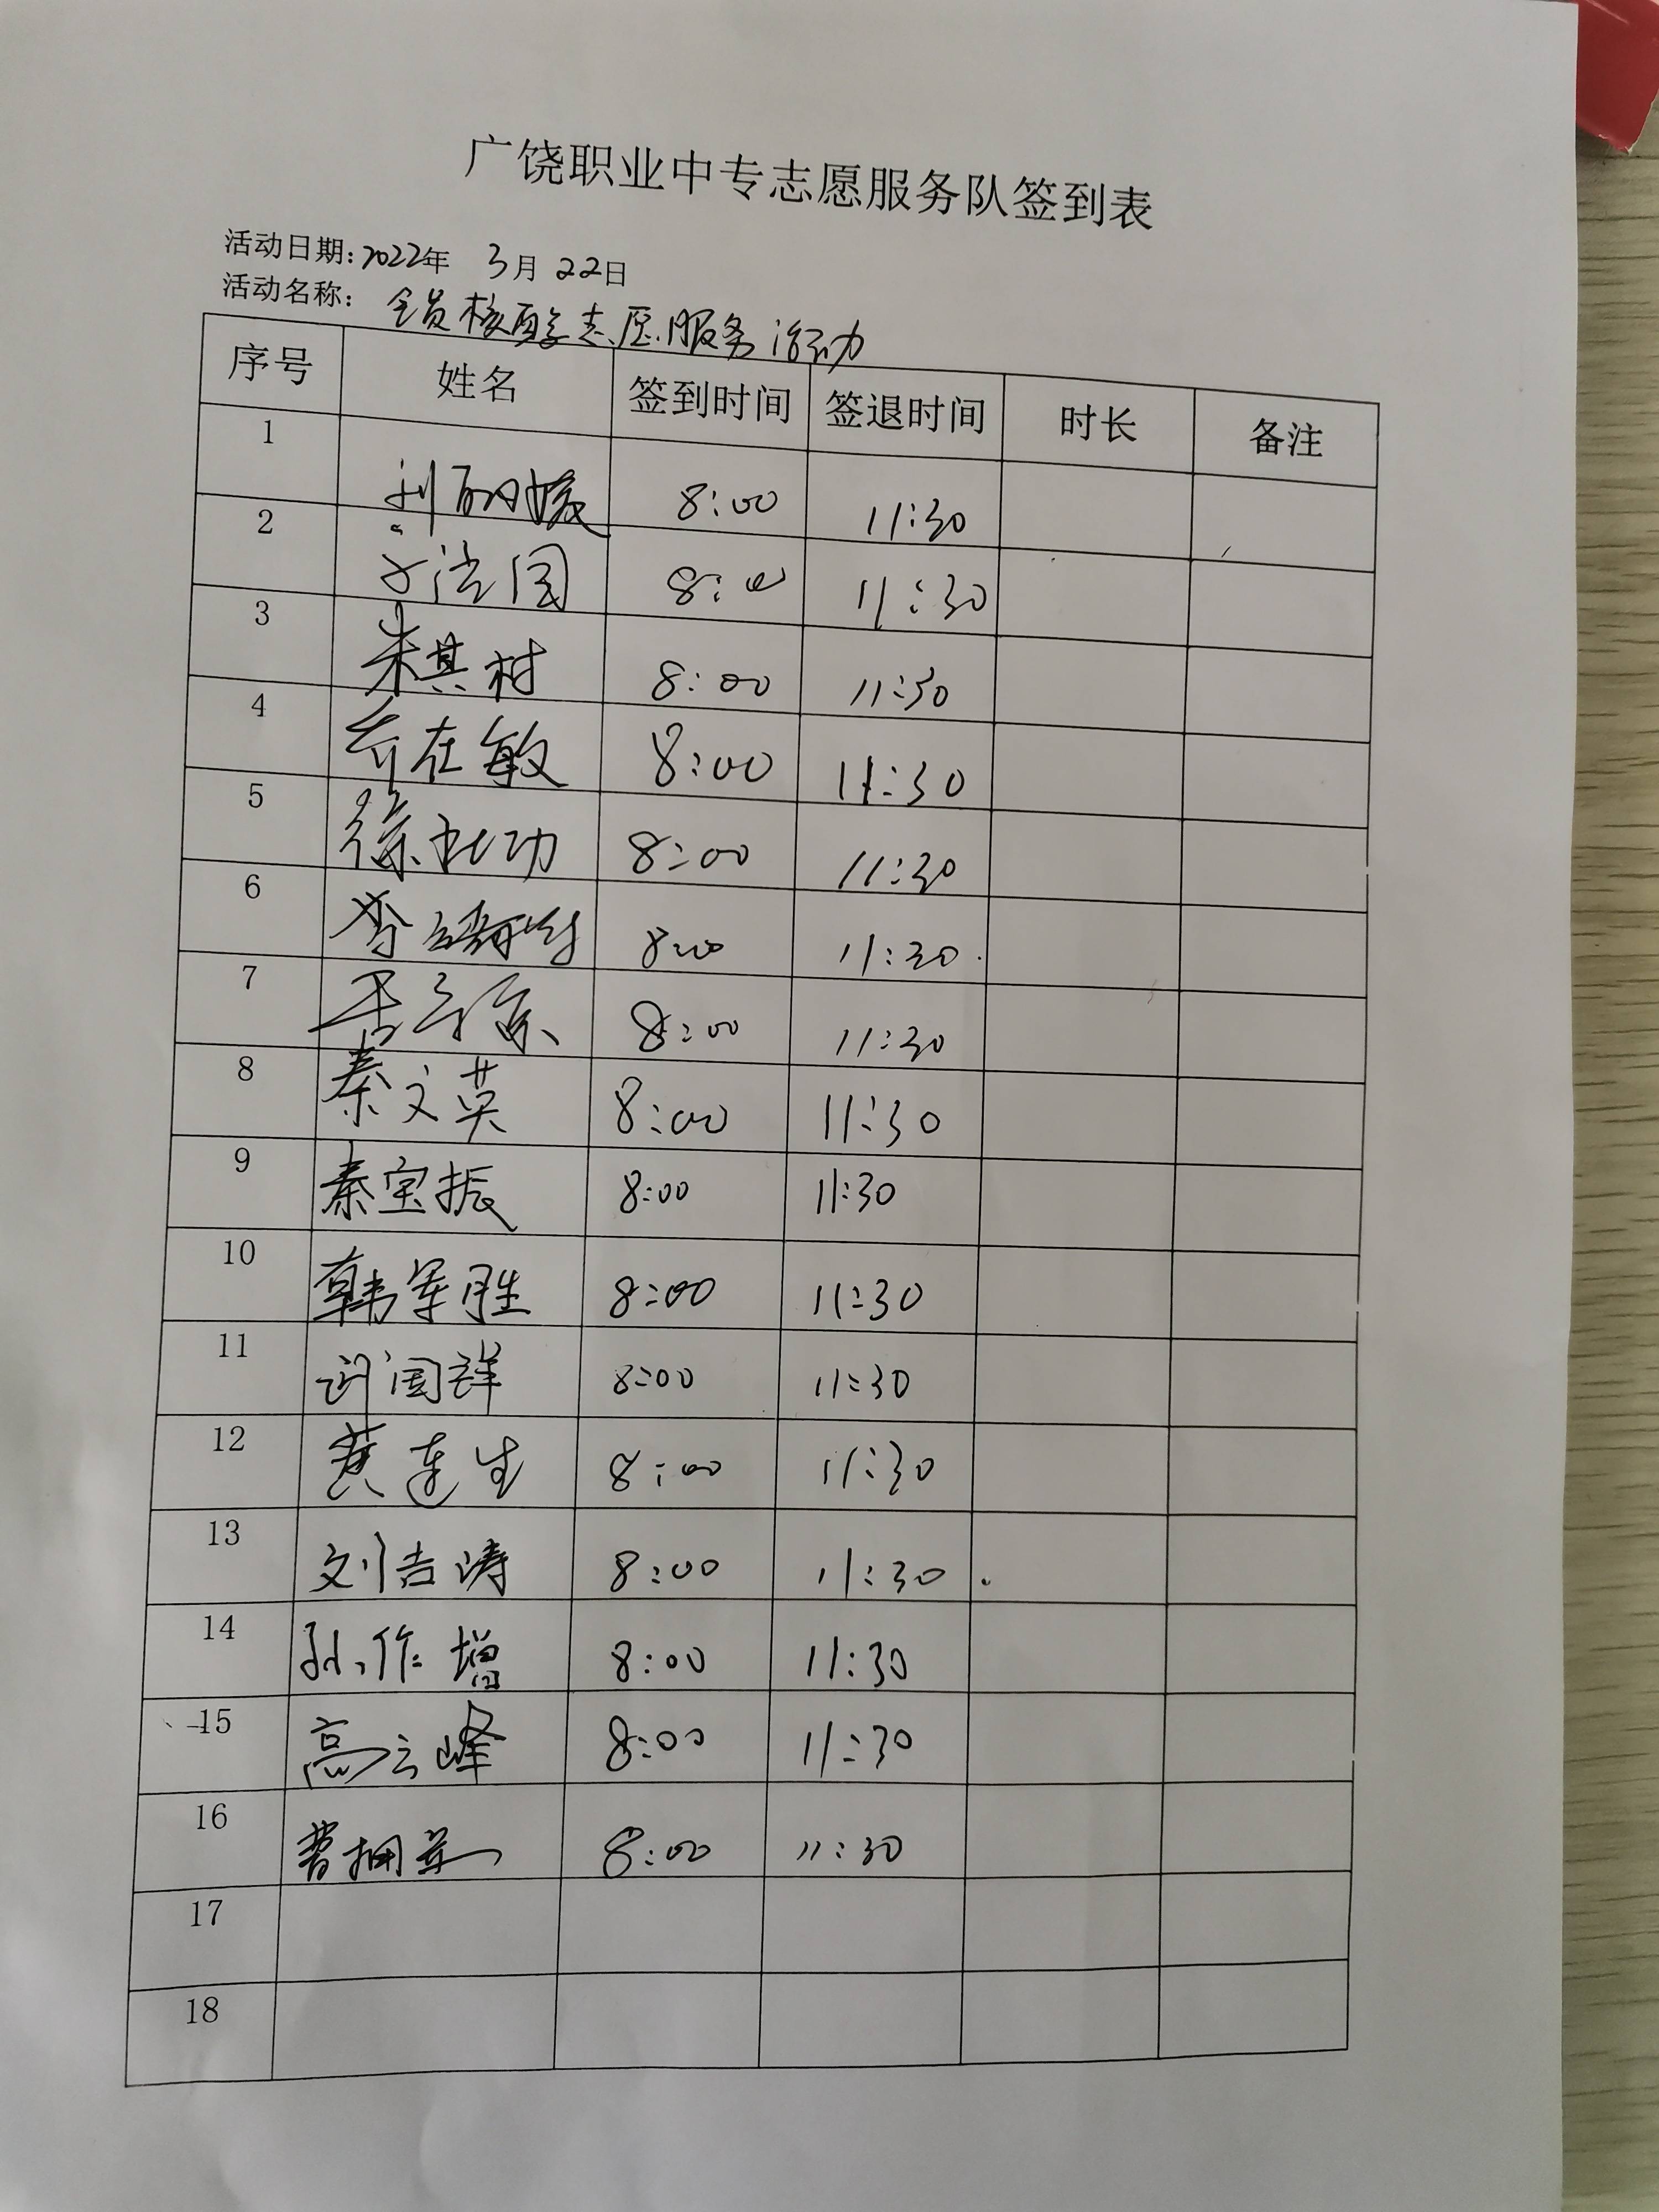 广饶职业中专志愿服务队签到表
活动日期:2022年 3月 22日
活动名称: 全员核酸志愿服务活动
序号 姓名 签到时间 签退时间 时长 备注
1 8:00 11:30
2 8:00 11:30
3 朱其村 8:00 11:30
4 乔在敏 8:00 11:30
5 徐 功 8:00 11:30
6 李 8:00 11:30
7 8:00 11:30
8 秦文英 8:00 11:30
9 秦宝振 8:00 11:30
10 韩军胜 8:00 11:30
11 祥 8:00 11:30
12 黄连生 8:00 11:30
13 刘吉涛 8:00 11:30
14 孙作增 8:00 11:30
15 高云峰 8:00 11:30
16 曹 8:00 11:30
17
18